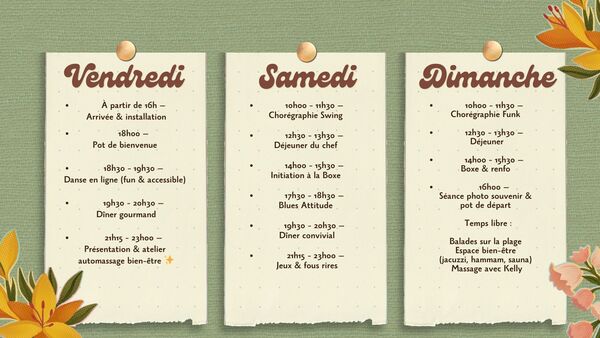 Vendredi
• À partir de 16h –
Arrivée & installation
• 18h00 –
Pot de bienvenue
• 18h30 - 19h30 –
Danse en ligne (fun & accessible)
• 19h30 - 20h30 –
Dîner gourmand
• 21h15 - 23h00 –
Présentation & atelier
automassage bien-être ✨
Samedi
• 10h00 - 11h30 –
Chorégraphie Swing
• 12h30 - 13h30 –
Déjeuner du chef
• 14h00 - 15h30 –
Initiation à la Boxe
• 17h30 - 18h30 –
Blues Attitude
• 19h30 - 20h30 –
Dîner convivial
• 21h15 - 23h00 –
Jeux & fous rires
Dimanche
• 10h00 - 11h30 –
Chorégraphie Funk
• 12h30 - 13h30 –
Déjeuner
• 14h00 - 15h30 –
Boxe & renfo
• 16h00 –
Séance photo souvenir &
pot de départ
Temps libre :
Balades sur la plage
Espace bien-être
(jacuzzi, hammam, sauna)
Massage avec Kelly